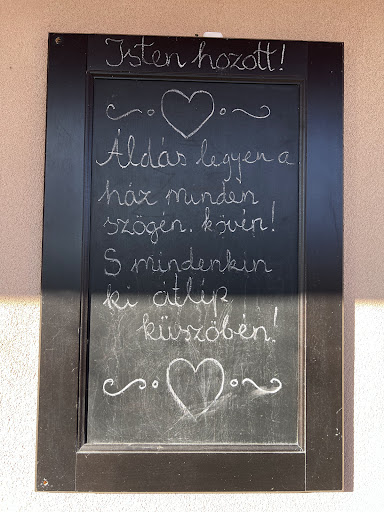 Isten hozott!
Áldás legyen a
ház minden
szögén. kövén!
S mindenkin
ki átlép
küszöbén!